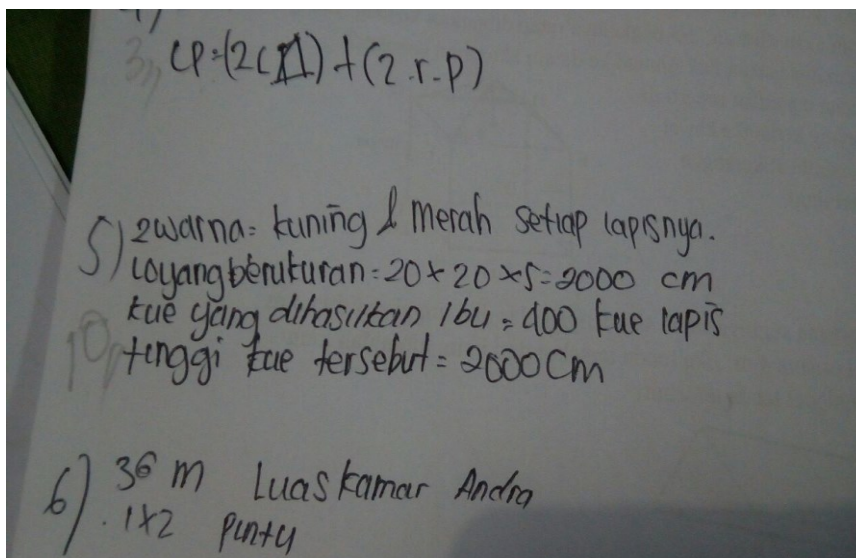 Lp=(2L△)+(2.r.p)
5) 2 warna = kuning & Merah setiap lapisnya.
Loyang berukuran = 20 x 20 x 5 = 2000 cm
kue yang dihasilkan ibu = 400 kue lapis
tinggi kue tersebut = 2000 cm
6) 36 m Luas kamar Andra
. 1x2 pintu